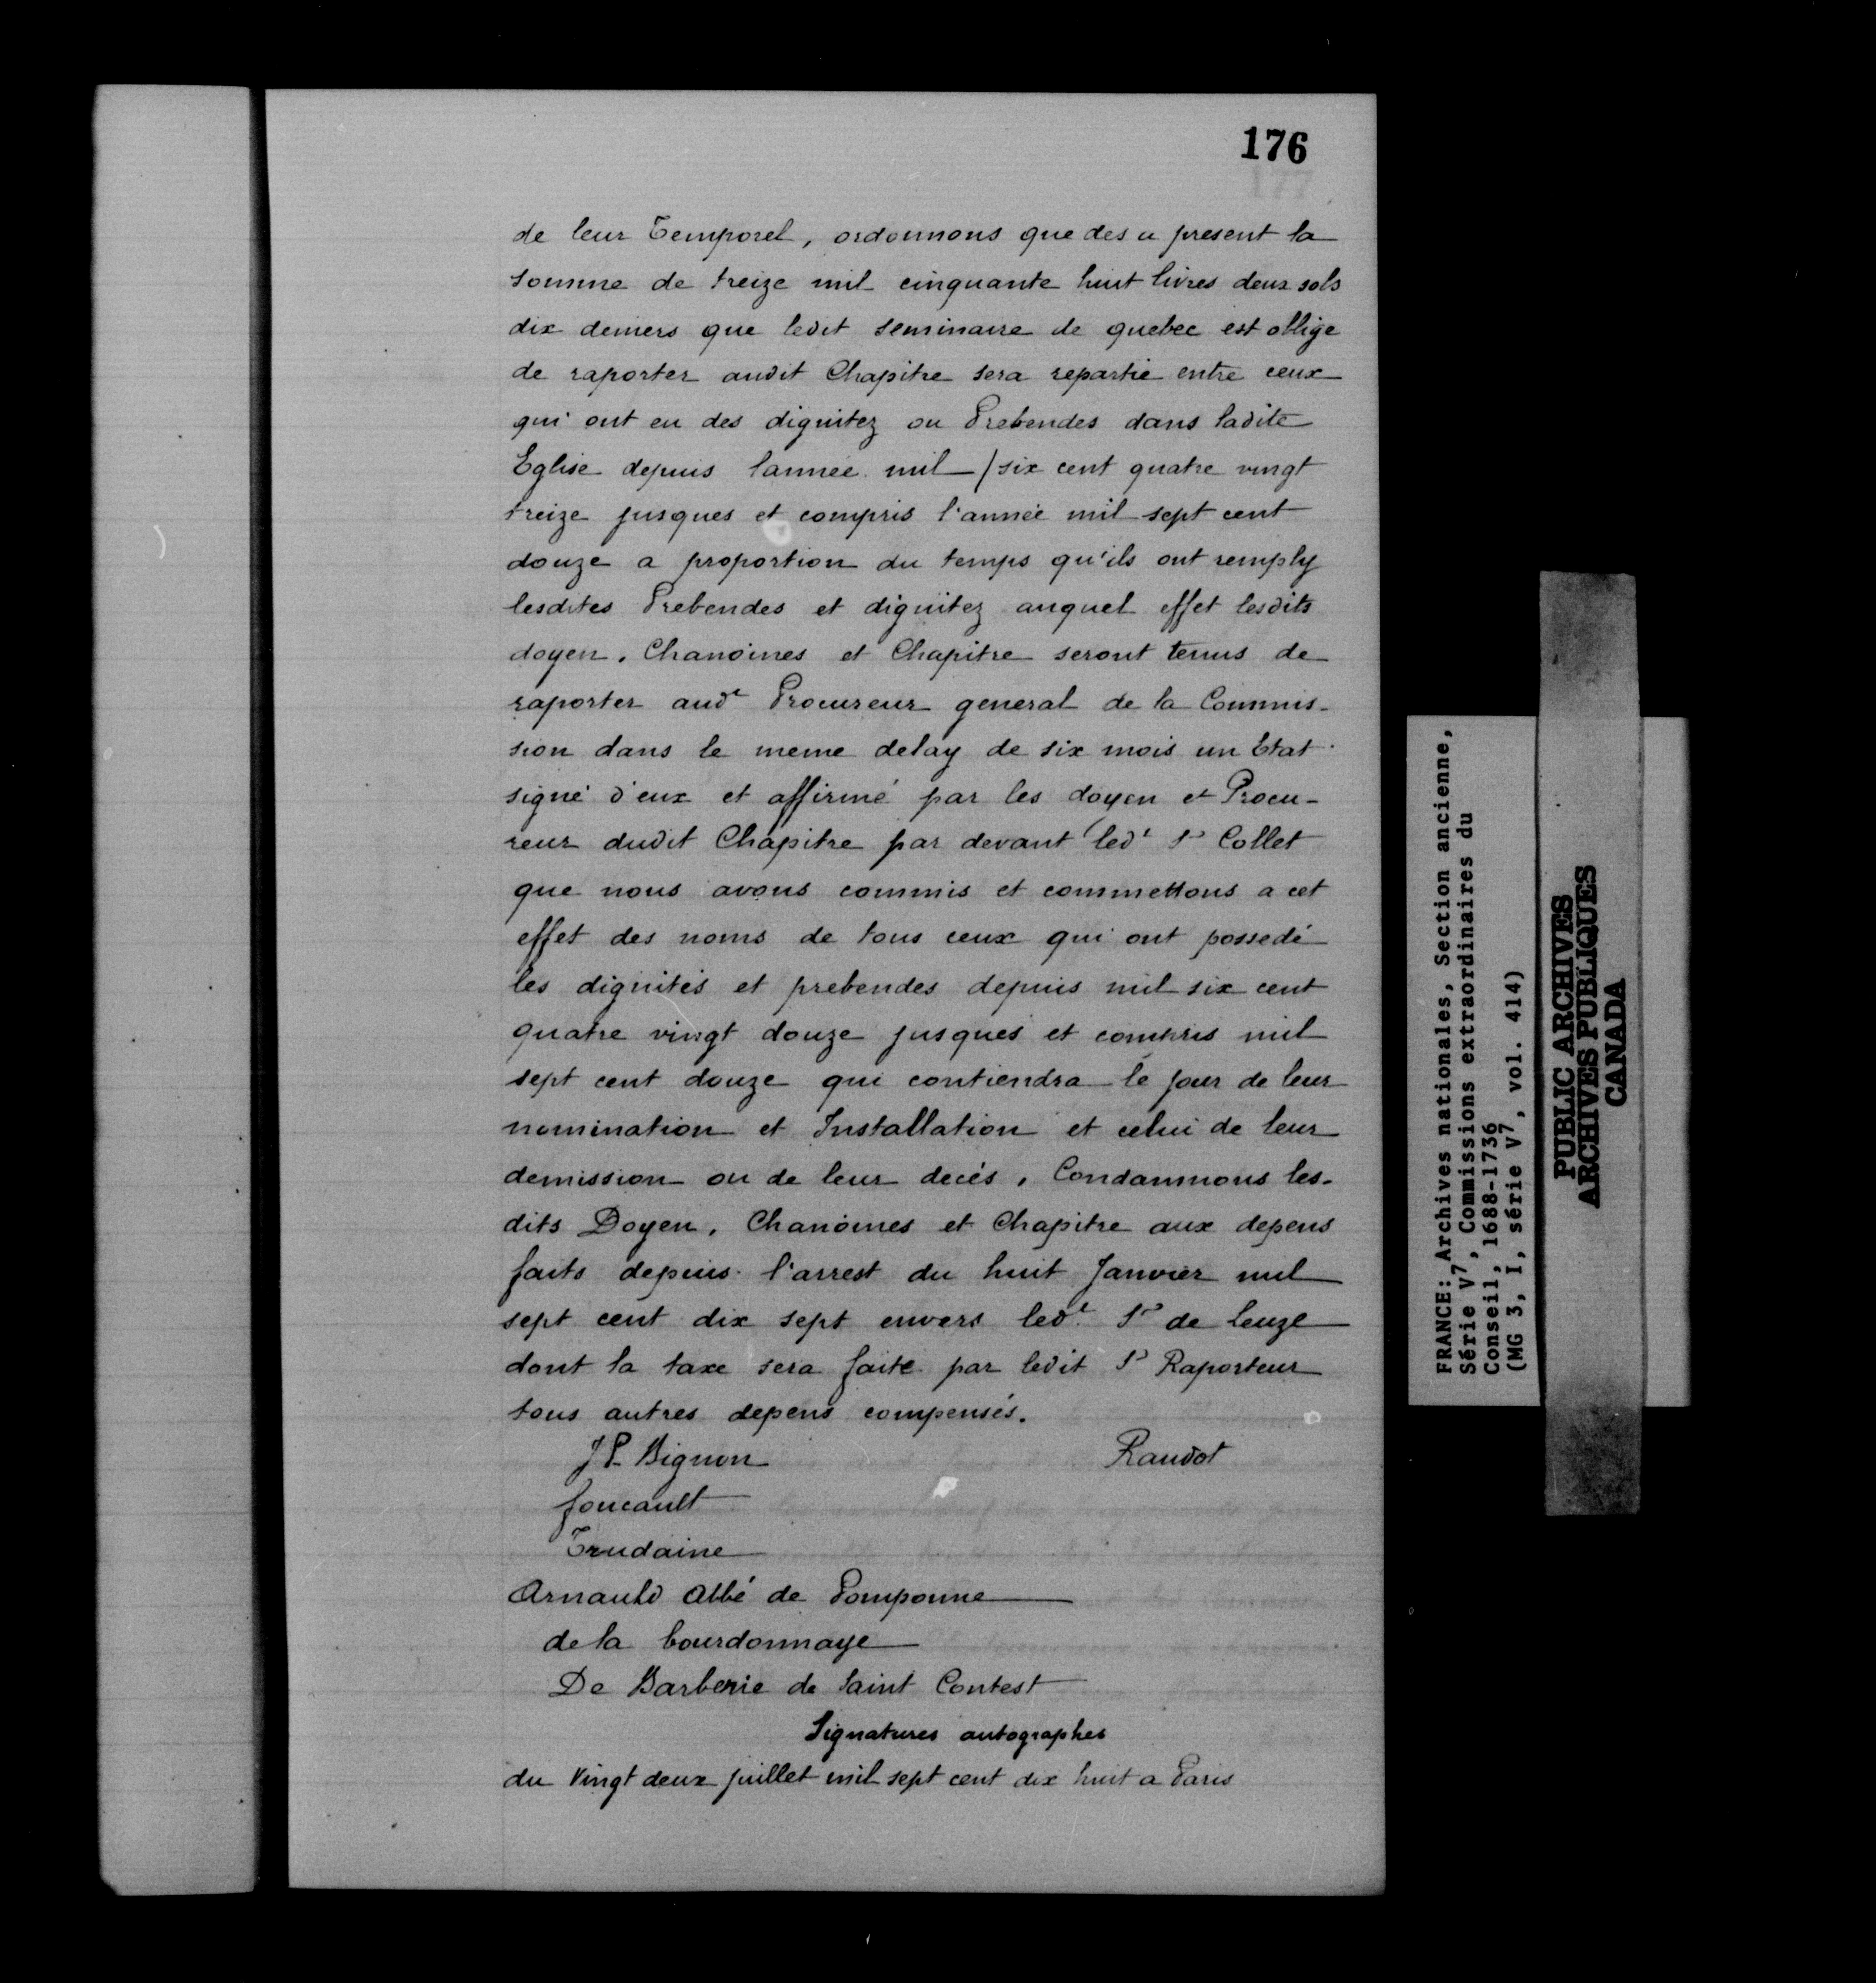 176
de leur Temporel, ordonnons que des a present la
somme de treize mil cinquante huit livres deux sols
dix deniers que ledit seminaire de quebec est oblige
de raporter audit Chapitre sera repartie entre ceux
qui ont eu des dignitez ou Prebendes dans ladite
Eglise depuis lannée mil / six cent quatre vingt
treize jusques et compris l'année mil sept cent
douze a proportion du temps qu'ils ont remply
lesdites Prebendes et dignitez auquel effet lesdits
doyen, Chanoines et Chapitre seront tenus de
raporter audt Procureur general de la Commis-
sion dans le meme delay de six mois un Etat
signé d'eux et affirmé par les doyen et Procu-
reur dudit Chapitre par devant ledt Sr Collet
que nous avons commis et commettons a cet
effet des noms de tous ceux qui ont possedé
les dignités et prebendes depuis mil six cent
quatre vingt douze jusques et compris mil
sept cent douze qui contiendra le jour de leur
nomination et Installation et celui de leur
demission ou de leur decés, Condamnons les-
dits Doyen, Chanoines et Chapitre aux depens
faits depuis l'arrest du huit Janvier mil
sept cent dix sept envers ledt Sr de leuze
dont la taxe sera faite par ledit Sr Raporteur
tous autres depens compensés.
J P. Bignon Raudot
foucault
Trudaine
Arnauld Abbé de Pomponne
de la bourdonnaye
De Barberie de Saint Contest
Signatures autographes
du Vingt deux juillet mil sept cent dix huit a Paris
FRANCE: Archives nationales, Section ancienne,
Série V7, Commissions extraordinaires du
Conseil, 1688-1736
(MG 3, I, série V7, vol. 414)
PUBLIC ARCHIVES
ARCHIVES PUBLIQUES
CANADA